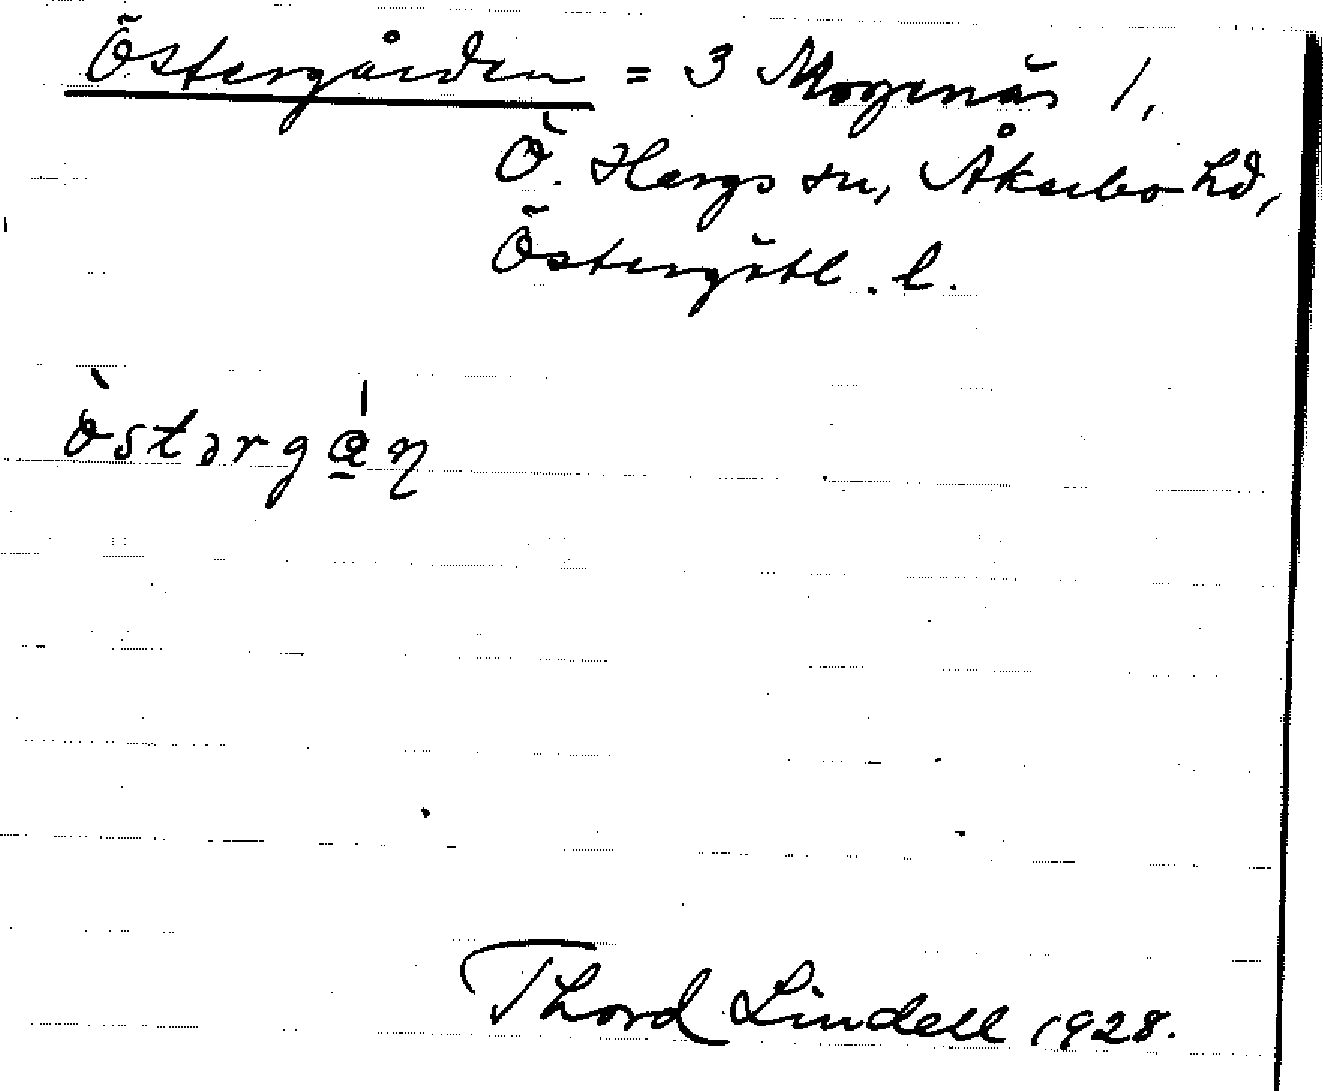 Östergården = 3 Mogenäs 1,
Ö. Hargs sn, Åkerbo hd,
Östergötl. l.
Thord Lindell 1928.